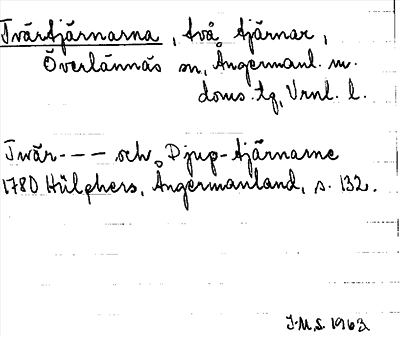 Tvärtjärnarna, två tjärnar,
Överlännäs sn, Ångermanl. m.
doms. tg, Vrnl. l.
Twär--- och Djup-tjärnarne
1780 Hülphers, Ångermanland, s. 132.
J.M.S. 1963